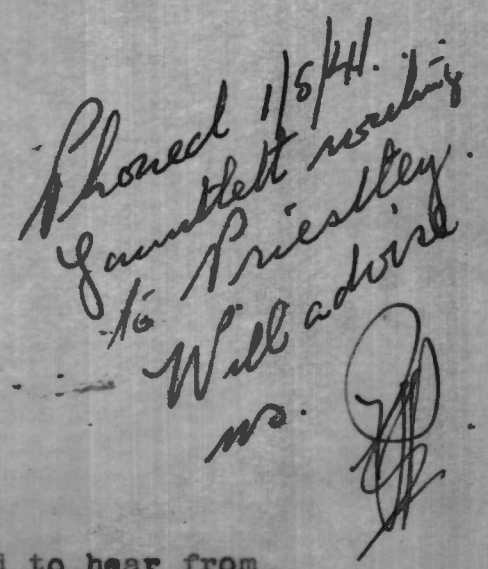 Phoned 1/5/41.
Gauntlett working
to Priestley.
Will advise
us.
to hear from